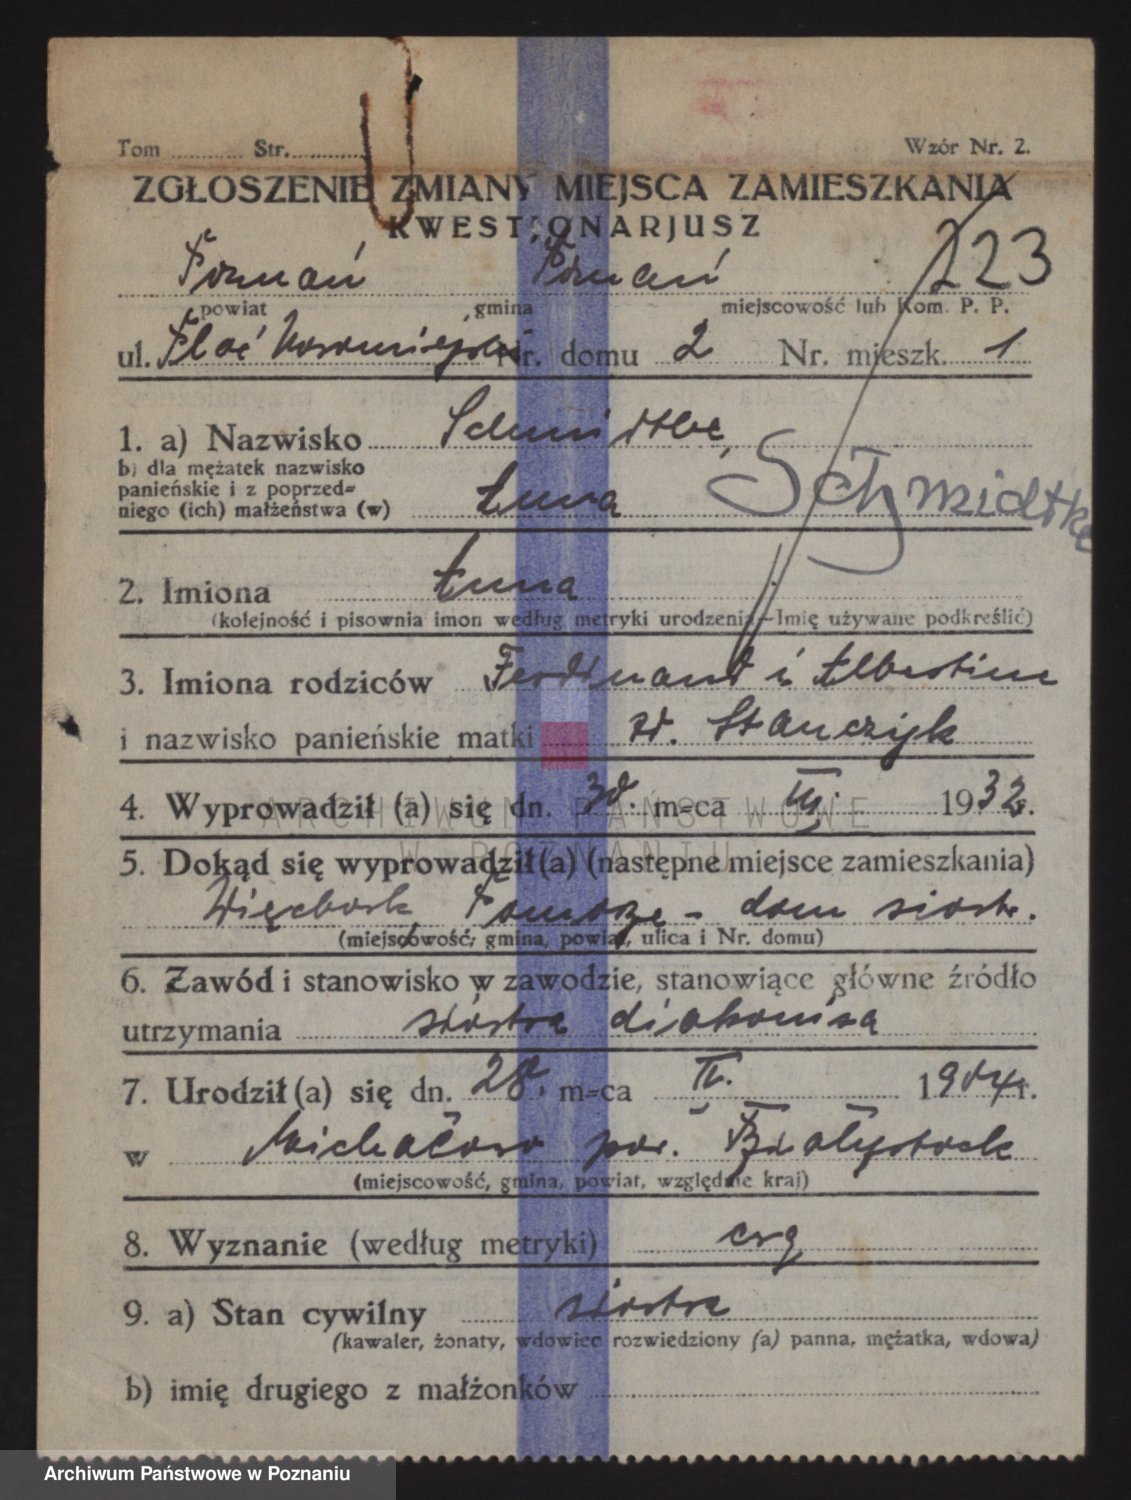 Tom ............ Str. ............ Wzór Nr. 2.
ZGŁOSZENIE ZMIANY MIEJSCA ZAMIESZKANIA
KWESTJONARJUSZ
Poznań Poznań 223
powiat gmina miejscowość lub Kom. P. P.
ul. Plac Nowomiejski Nr. domu 2 Nr. mieszk. 1
1. a) Nazwisko Schmidtke,
b) dla mężatek nazwisko
panieńskie i z poprzed=
niego (ich) małżeństwa (w) Anna
Schmidtke
2. Imiona Anna
(kolejność i pisownia imon według metryki urodzenia—Imię używane podkreślić)
3. Imiona rodziców Ferdinand i Albertine
i nazwisko panieńskie matki zd. Stanczyk
4. Wyprowadził (a) się dn. 30. m=ca III. 1932r.
ARCHIWUM PAŃSTWOWE
W POZNANIU
5. Dokąd się wyprowadził(a) (następne miejsce zamieszkania)
Więcbork Pomorze - dom siostr.
(miejscowość, gmina, powiat, ulica i Nr. domu)
6. Zawód i stanowisko w zawodzie, stanowiące główne źródło
utrzymania siostra diakonisa
7. Urodził(a) się dn. 28. m=ca II. 1904r.
w pow. Białystock
(miejscowość, gmina, powiat, względnie kraj)
8. Wyznanie (według metryki) ewg
9. a) Stan cywilny siostra
(kawaler, żonaty, wdowiec rozwiedziony (a) panna, mężatka, wdowa)
b) imię drugiego z małżonków
Archiwum Państwowe w Poznaniu